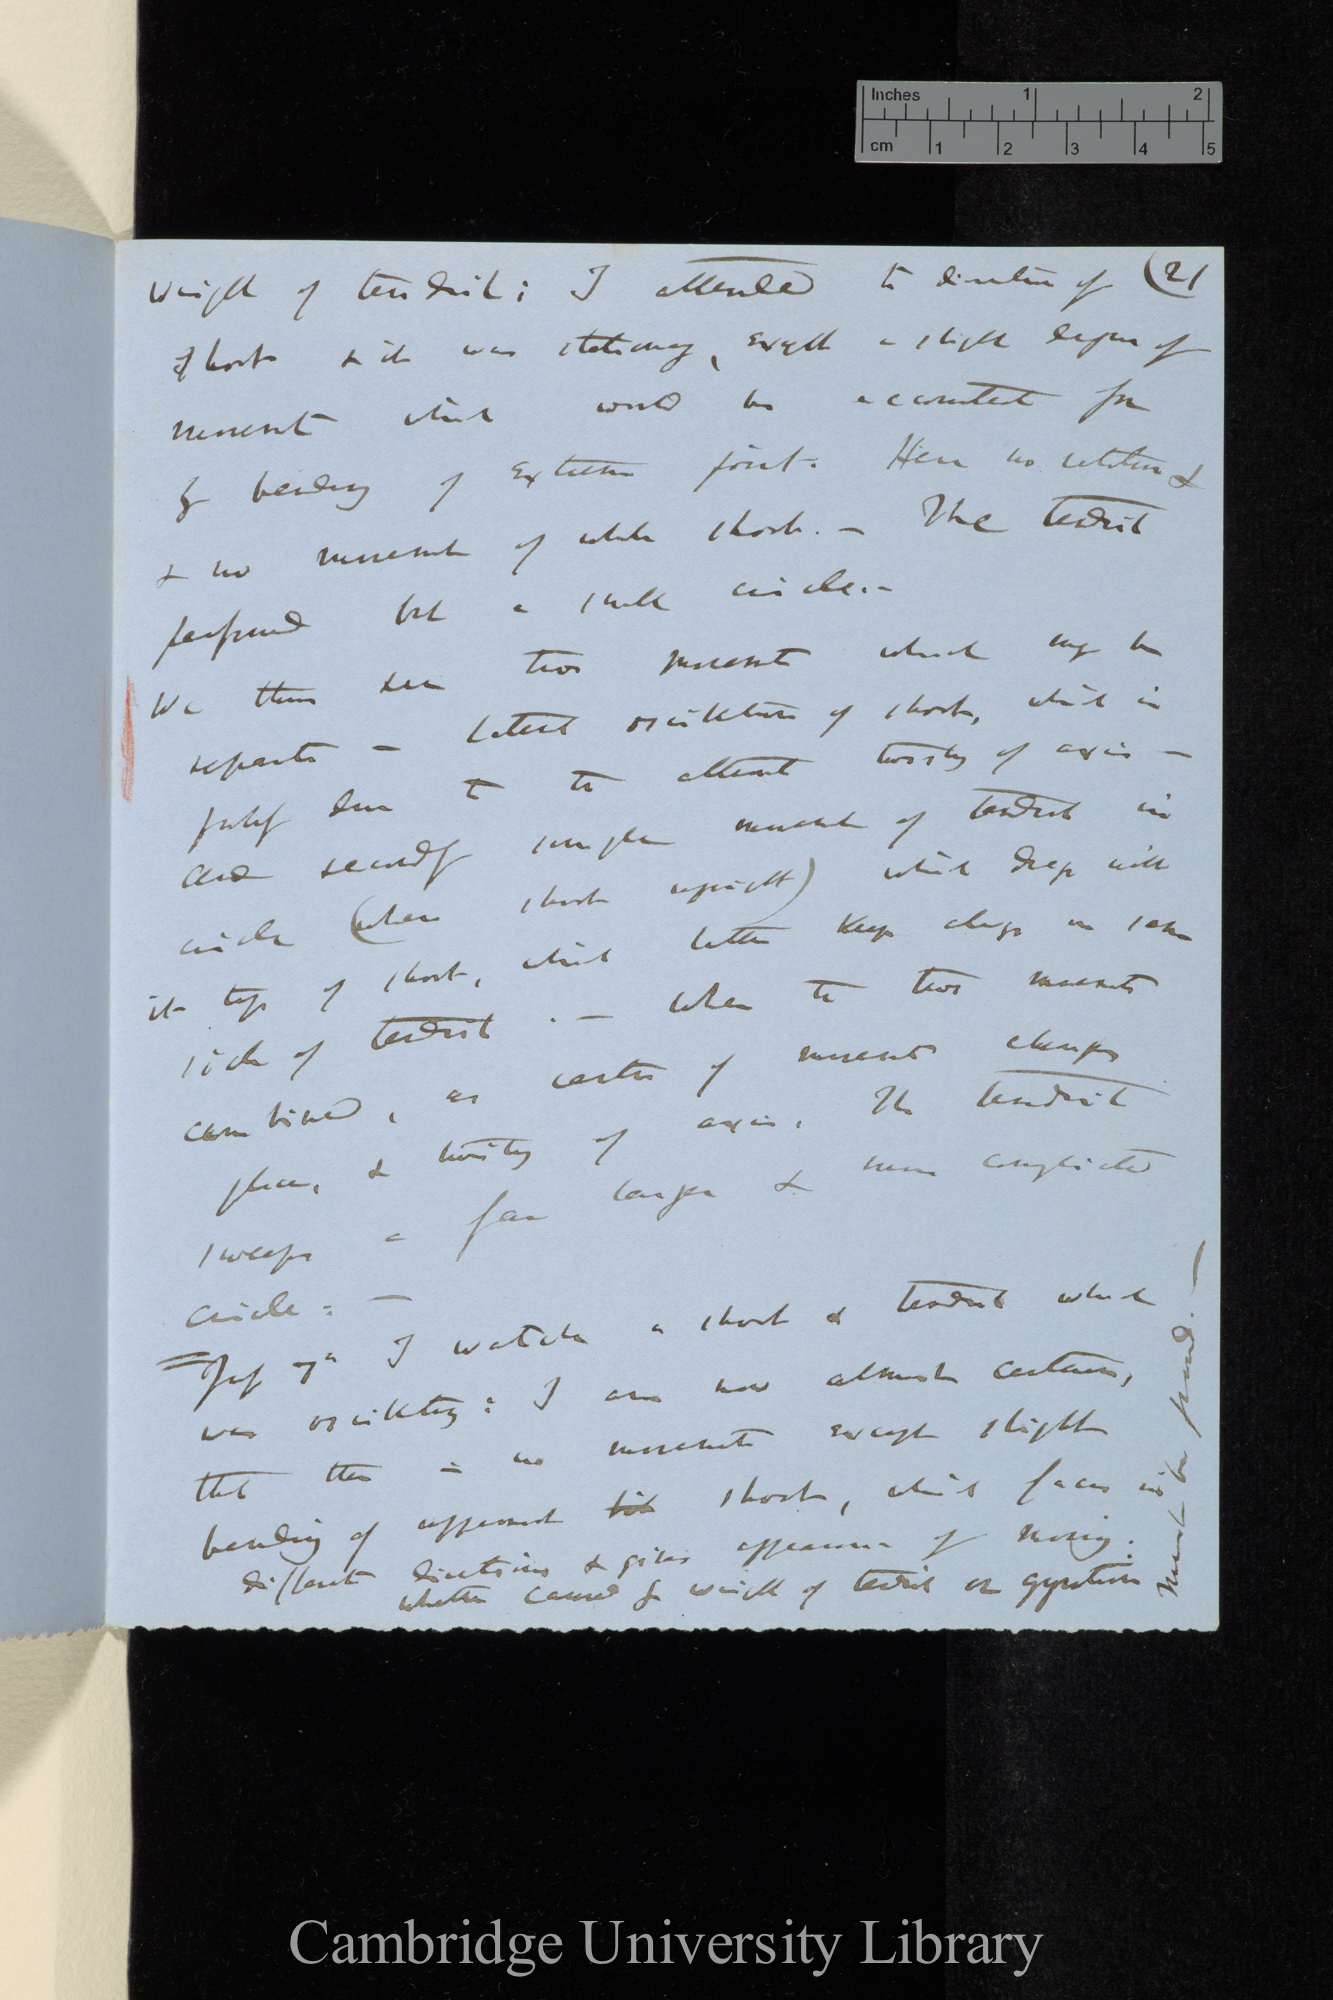 Inches 1 2
cm 1 2 3 4 5
(21
weight of tendril; I attended to direction of
shoot & it was stationary, except a slight degree of
movement which would be accounted for
by bending of extreme joint. Here no rotation &
& no movement of whole shoot. — The tendril
performed but a small circle. —
We thus see two movements which may be
separate — lateral oscillation of shoot, which is
partly due to to alternate twisting of axis —
and secondly simple movement of tendril in
circle (when shoot upright) which drags with
it top of shoot, which latter keeps always on same
side of tendril. — When the two movements
combined, as centre of movement changes
place, & twisting of axis, the tendril
sweeps a far larger & more complicated
circle. —
July 7th I watched a shoot & tendril which
was oscillating: I am now almost certain,
that there is no movement except slight
bending of uppermost bit shoot, which faces in
different directions & gives appearance of moving.
whether caused by weight of tendril or gyration
must be found. —
Cambridge University Library